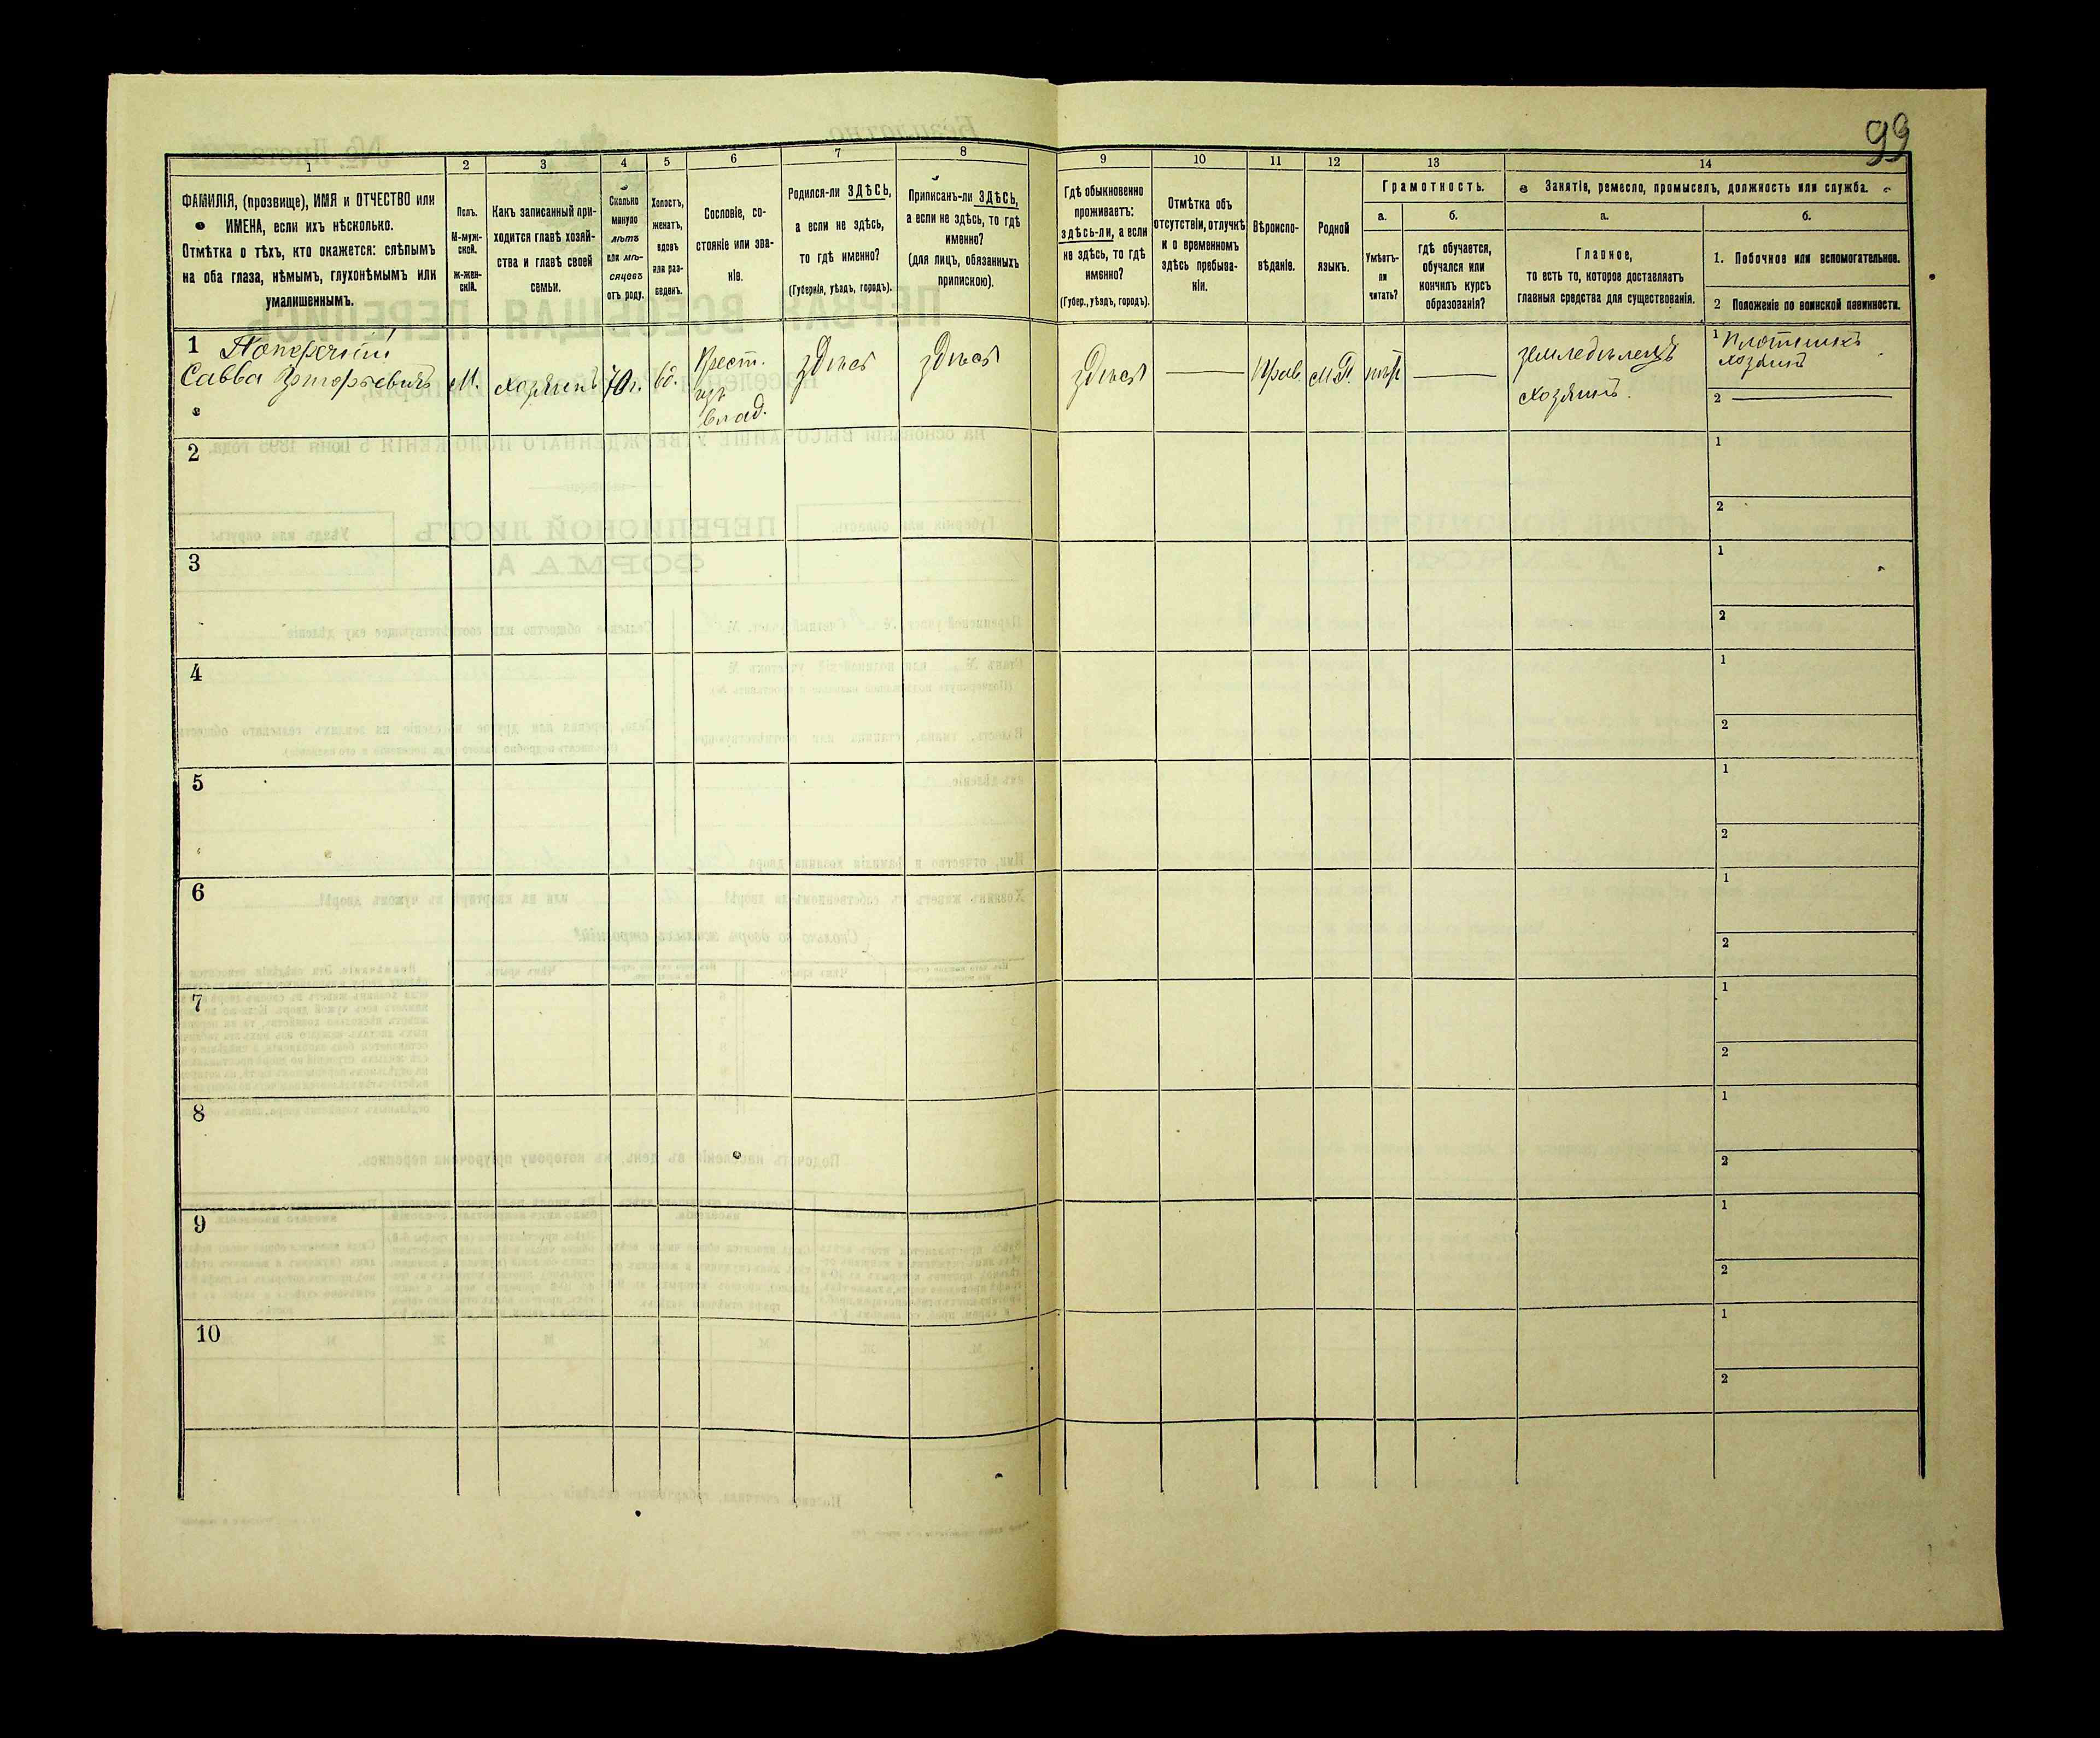 99
1
2
3
4
5
6
7
8
9
10
11
12
13
14
ФАМИЛІЯ, (прозвище), ИМЯ и ОТЧЕСТВО или
ИМЕНА, если ихъ нѣсколько.
Отмѣтка о тѣхъ, кто окажется: слѣпымъ
на оба глаза, нѣмымъ, глухонѣмымъ или
умалишеннымъ.
Полъ.
М-муж-
ской.
ж-жен-
скій.
Какъ записанный при-
ходится главѣ хозяй-
ства и главѣ своей
семьи.
Сколько
минуло
лѣтъ
или мѣ-
сяцевъ
отъ роду.
Холостъ,
женатъ,
вдовъ
или раз-
веденъ.
Сословіе, со-
стояніе или зва-
ніе.
Родился-ли ЗДѢСЬ,
а если не здѣсь,
то гдѣ именно?
(Губернія, уѣздъ, городъ).
Приписанъ-ли ЗДѢСЬ,
а если не здѣсь, то гдѣ
именно?
(для лицъ, обязанныхъ
припискою).
Гдѣ обыкновенно
проживаетъ:
здѣсь-ли, а если
не здѣсь, то гдѣ
именно?
(Губер., уѣздъ, городъ).
Отмѣтка объ
отсутствіи, отлучкѣ
и о временномъ
здѣсь пребыва-
ніи.
Вѣроиспо-
вѣданіе.
Родной
языкъ.
Грамотность.
а.
б.
Умѣетъ-
ли
читать?
гдѣ обучается,
обучался или
кончилъ курсъ
образованія?
Занятіе, ремесло, промыселъ, должность или служба.
а.
б.
Главное,
то есть то, которое доставляетъ
главныя средства для существованія.
1. Побочное или вспомогательное.
2 Положеніе по воинской повинности.
1
Савва
М.
хозяинъ
70 г.
вд.
Крест.
изъ
влад.
здѣсь
здѣсь
здѣсь
Прав.
нѣт
Земледѣлецъ
хозяинъ.
1 Плотникъ
хозяинъ
2
2
1
2
3
1
2
4
1
2
5
1
2
6
1
2
7
1
2
8
1
2
9
1
2
10
1
2